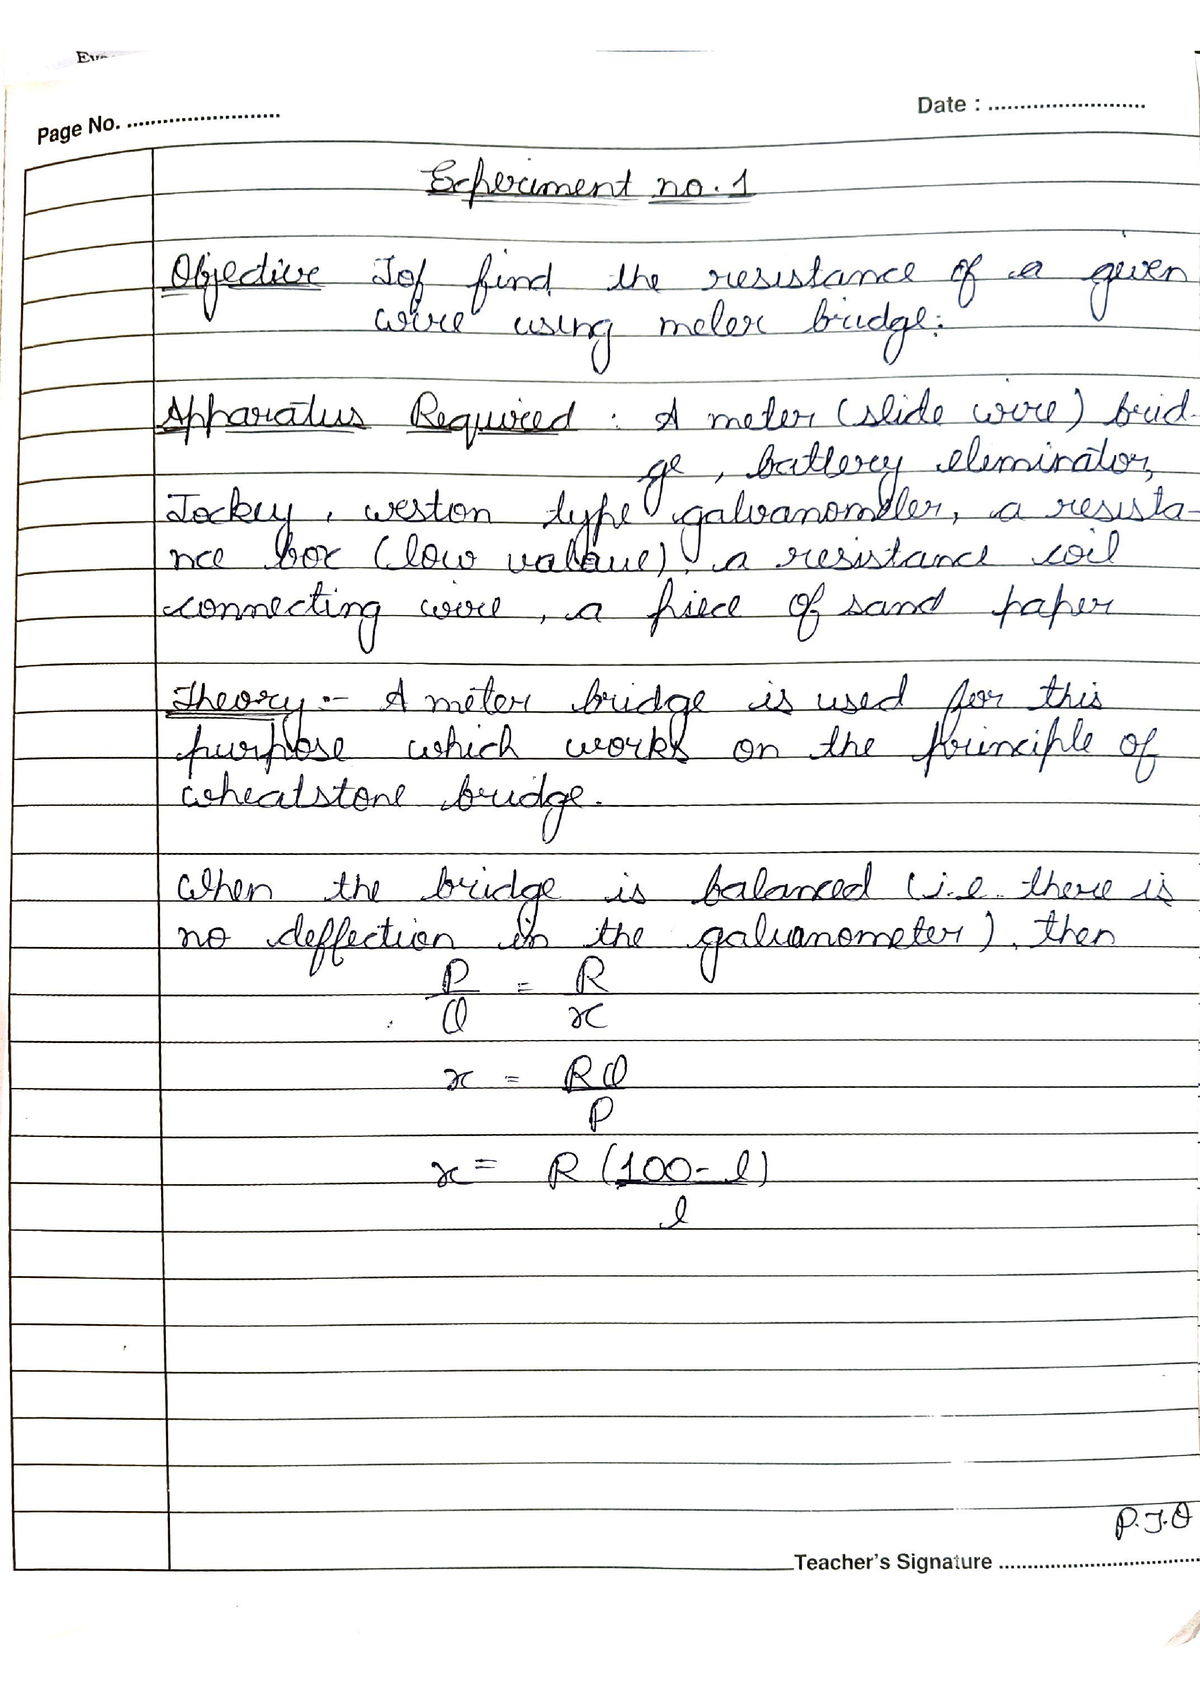 Page No. ........................
Date : ........................
Experiment no. 1
Objective Tof find the resistance of a given
wire using meter bridge:
Apparatus Required : A meter (slide wire) brid-
ge, battery eleminator,
Jockey, weston type galvanometer, a resista-
nce box (low valaue), a resistance coil
connecting wire, a piece of sand paper
Theory :- A meter bridge is used for this
purpose which works on the principle of
wheatstone bridge.
When the bridge is balanced (i.e. there is
no deffection in the galvanometer), then
P/Q = R/x
x = RQ/P
x = R (100-l)/l
P.T.O
Teacher's Signature ................................